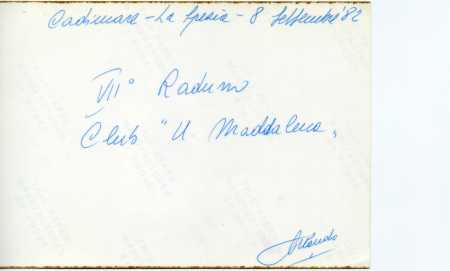 Cadimare - La Spezia - 8 Settembre '82
VII° Raduno
Club "U. Maddalena"